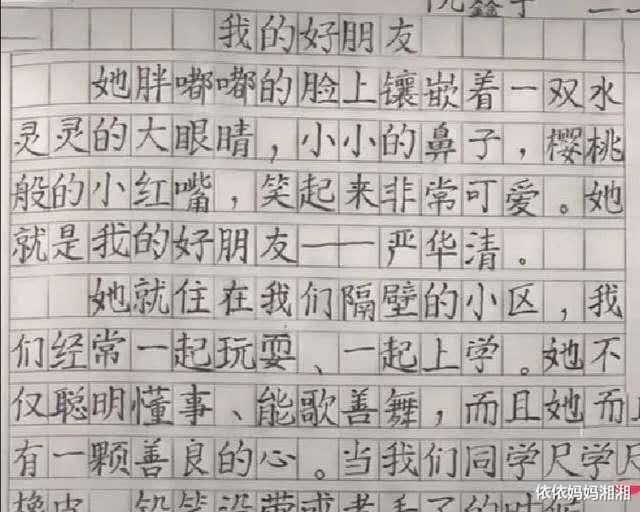 我的好朋友
她胖嘟嘟的脸上镶嵌着一双水
灵灵的大眼睛，小小的鼻子，樱桃
般的小红嘴，笑起来非常可爱。她
就是我的好朋友——严华清。
她就住在我们隔壁的小区，我
们经常一起玩耍、一起上学。她不
仅聪明懂事、能歌善舞，而且她而
有一颗善良的心。当我们同学尺学
橡皮、铅笔没带或者丢了的时候
依依妈妈湘湘